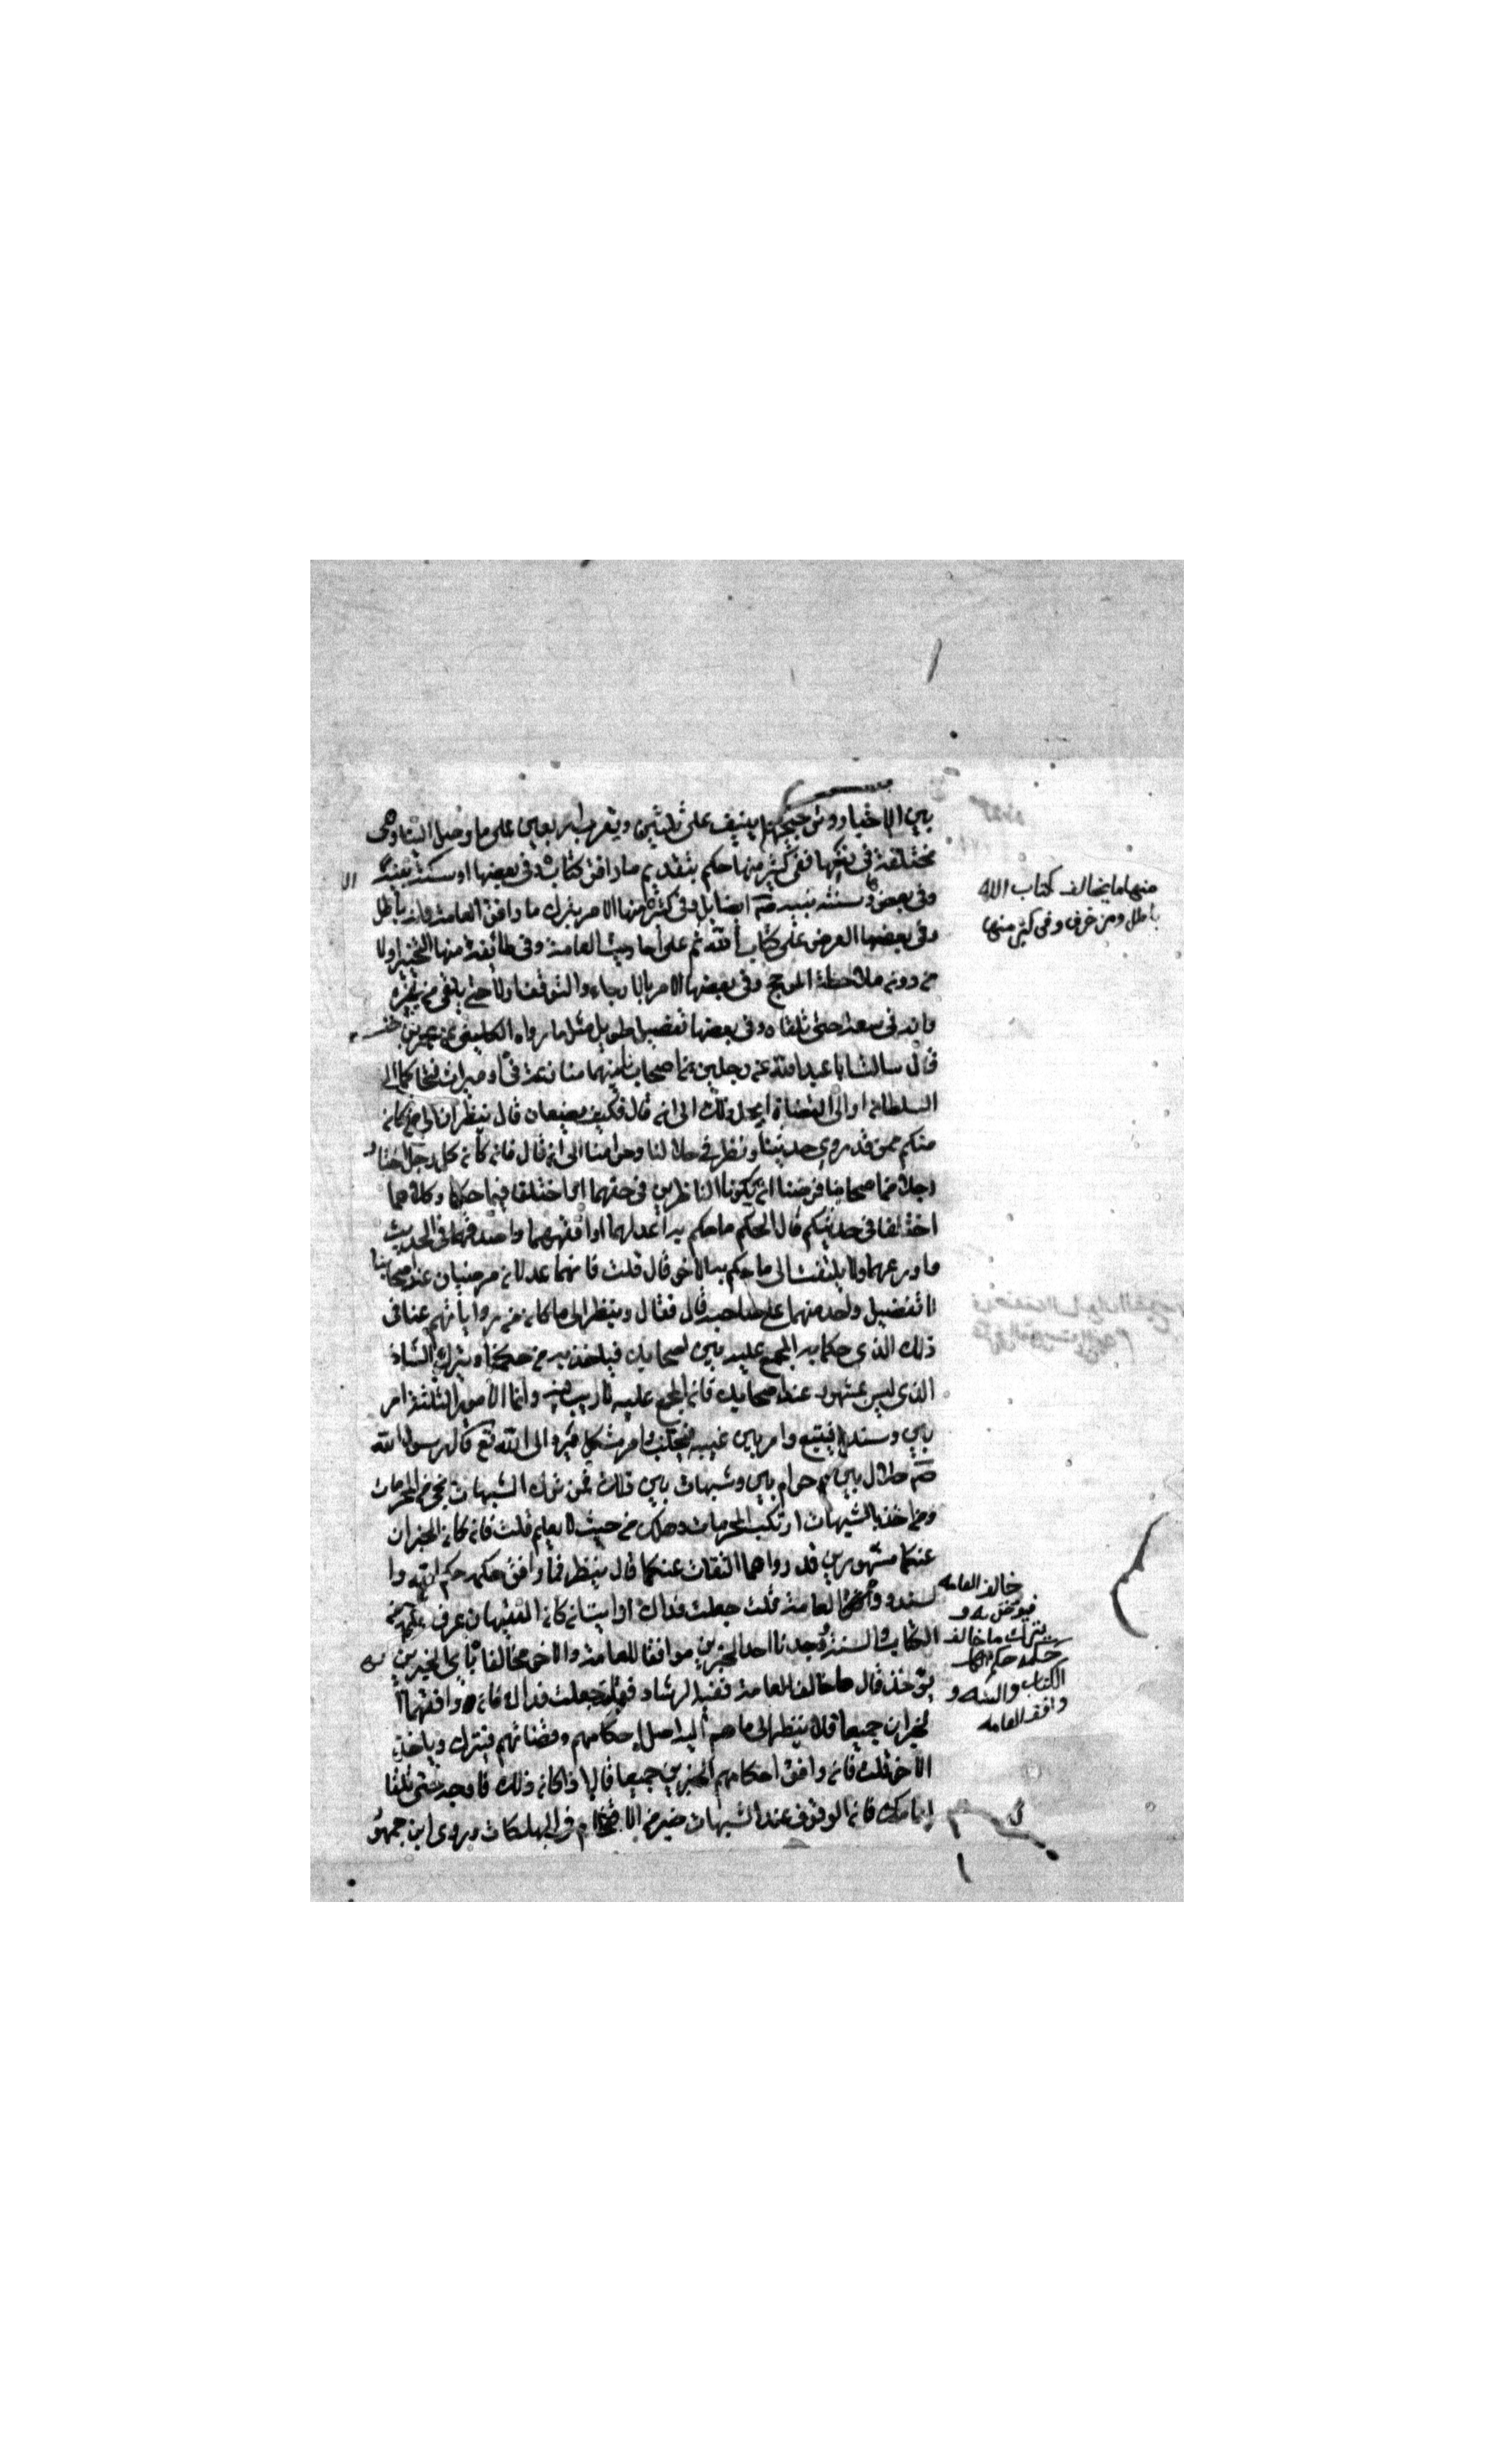 بين الاخبار وترجيحها ينيف على ثلثين ويقرب اربعين على ما وصل الينا وهى
مختلفة فى نحوها ففى كثير منها حكم بتقديم ما وافق كتاب وفى بعضها او سنة نبيه
وفى بعض سنة نبيه صم ايضا بل وفى كثير منها الامر بترك ما وافق العامة وانه باطل
وفى بعضها العرض على كتاب الله ثم على احاديث العامة وفى طائفة منها التخيير اولا
من دون ملاحظة المرجح وفى بعضها الامر بالارجاء والتوقف اولا حتى يلقى من يخبره
فانه فى سعة حتى تلقاه وفى بعضها تفصيل طويل مثل ما رواه الكلينى عن عمر بن حنـ
قال سالت ابا عبد الله عن رجلين من اصحابنا بينهما منازعة فى او ميراث فتحاكما الى
السلطان او الى القضاة ايحل ذلك الى ان قال فكيف يصنعان قال ينظران الى من كان
منكم ممن قد روى حديثنا ونظر فى حلالنا وحرامنا الى ان قال فان كان كل رجل اختار
رجلا من اصحابنا فرضيا ان يكونا الناظرين فى حقهما اختلفا فيما حكما وكلاهما
اختلفا فى حديثكم قال الحكم ما حكم به اعدلهما او افقههما واصدقهما فى الحديث
واورعهما ولا يلتفت الى ما يحكم به الاخر قال قلت فانهما عدلان مرضيان عند اصحابنا
لا تفضيل واحد منهما على صاحبه قال فقال وينظر الى ما كان من رواياتهم عنا فى
ذلك الذى حكما به المجمع عليه بين اصحابك فيأخذ به من حكمنا ويترك الشاذ
الذى ليس بمشهور عند اصحابك فان المجمع عليه لا ريب فيه وانما الامور الثلثة امر
بين رشده فيتبع وامر بين غيه فيجتنب وامر مشكل فيرد الى الله تع قال رسول الله
صم حلال بين ثم حرام بين وشبهات بين ذلك فمن ترك الشبهات نجى من المحرمات
ومن اخذ بالشبهات ارتكب المحرمات وهلك من حيث لا يعلم قلت فان كان الخبران
عنكما مشهورين قد رواهما الثقات عنكما قال ينظر فما وافق حكمه حكم الله وا
لسنة العامة قلت جعلت فداك ارايت ان كان الفقيهان عرف حكمه من
الكتاب والسنة وجدنا احد الخبرين موافقا للعامة والاخر مخالفا باى الخبرين
يؤخذ قال ما خالف العامة ففيه الرشاد فقلت جعلت فداك فان وافقهما ا
لخبران جميعا قال ينظر الى ما هم اليه اميل حكامهم وقضاتهم فيترك وياخذ
الاخر قلت فان وافق احكامهم الخبرين جميعا قال اذا كان ذلك فارجه حتى تلقا
امامك فان الوقوف عند الشبهات خير من الاقتحام فى الهلكات وروى ابن جمهو
منها ما يخالف كتاب الله
باطل ومن خرف وفى كثير منها
خالف العامه
فيوخذ به و
يترك ما خالف
حكمه حكم
الكتاب والسنه و
وافقه العامه